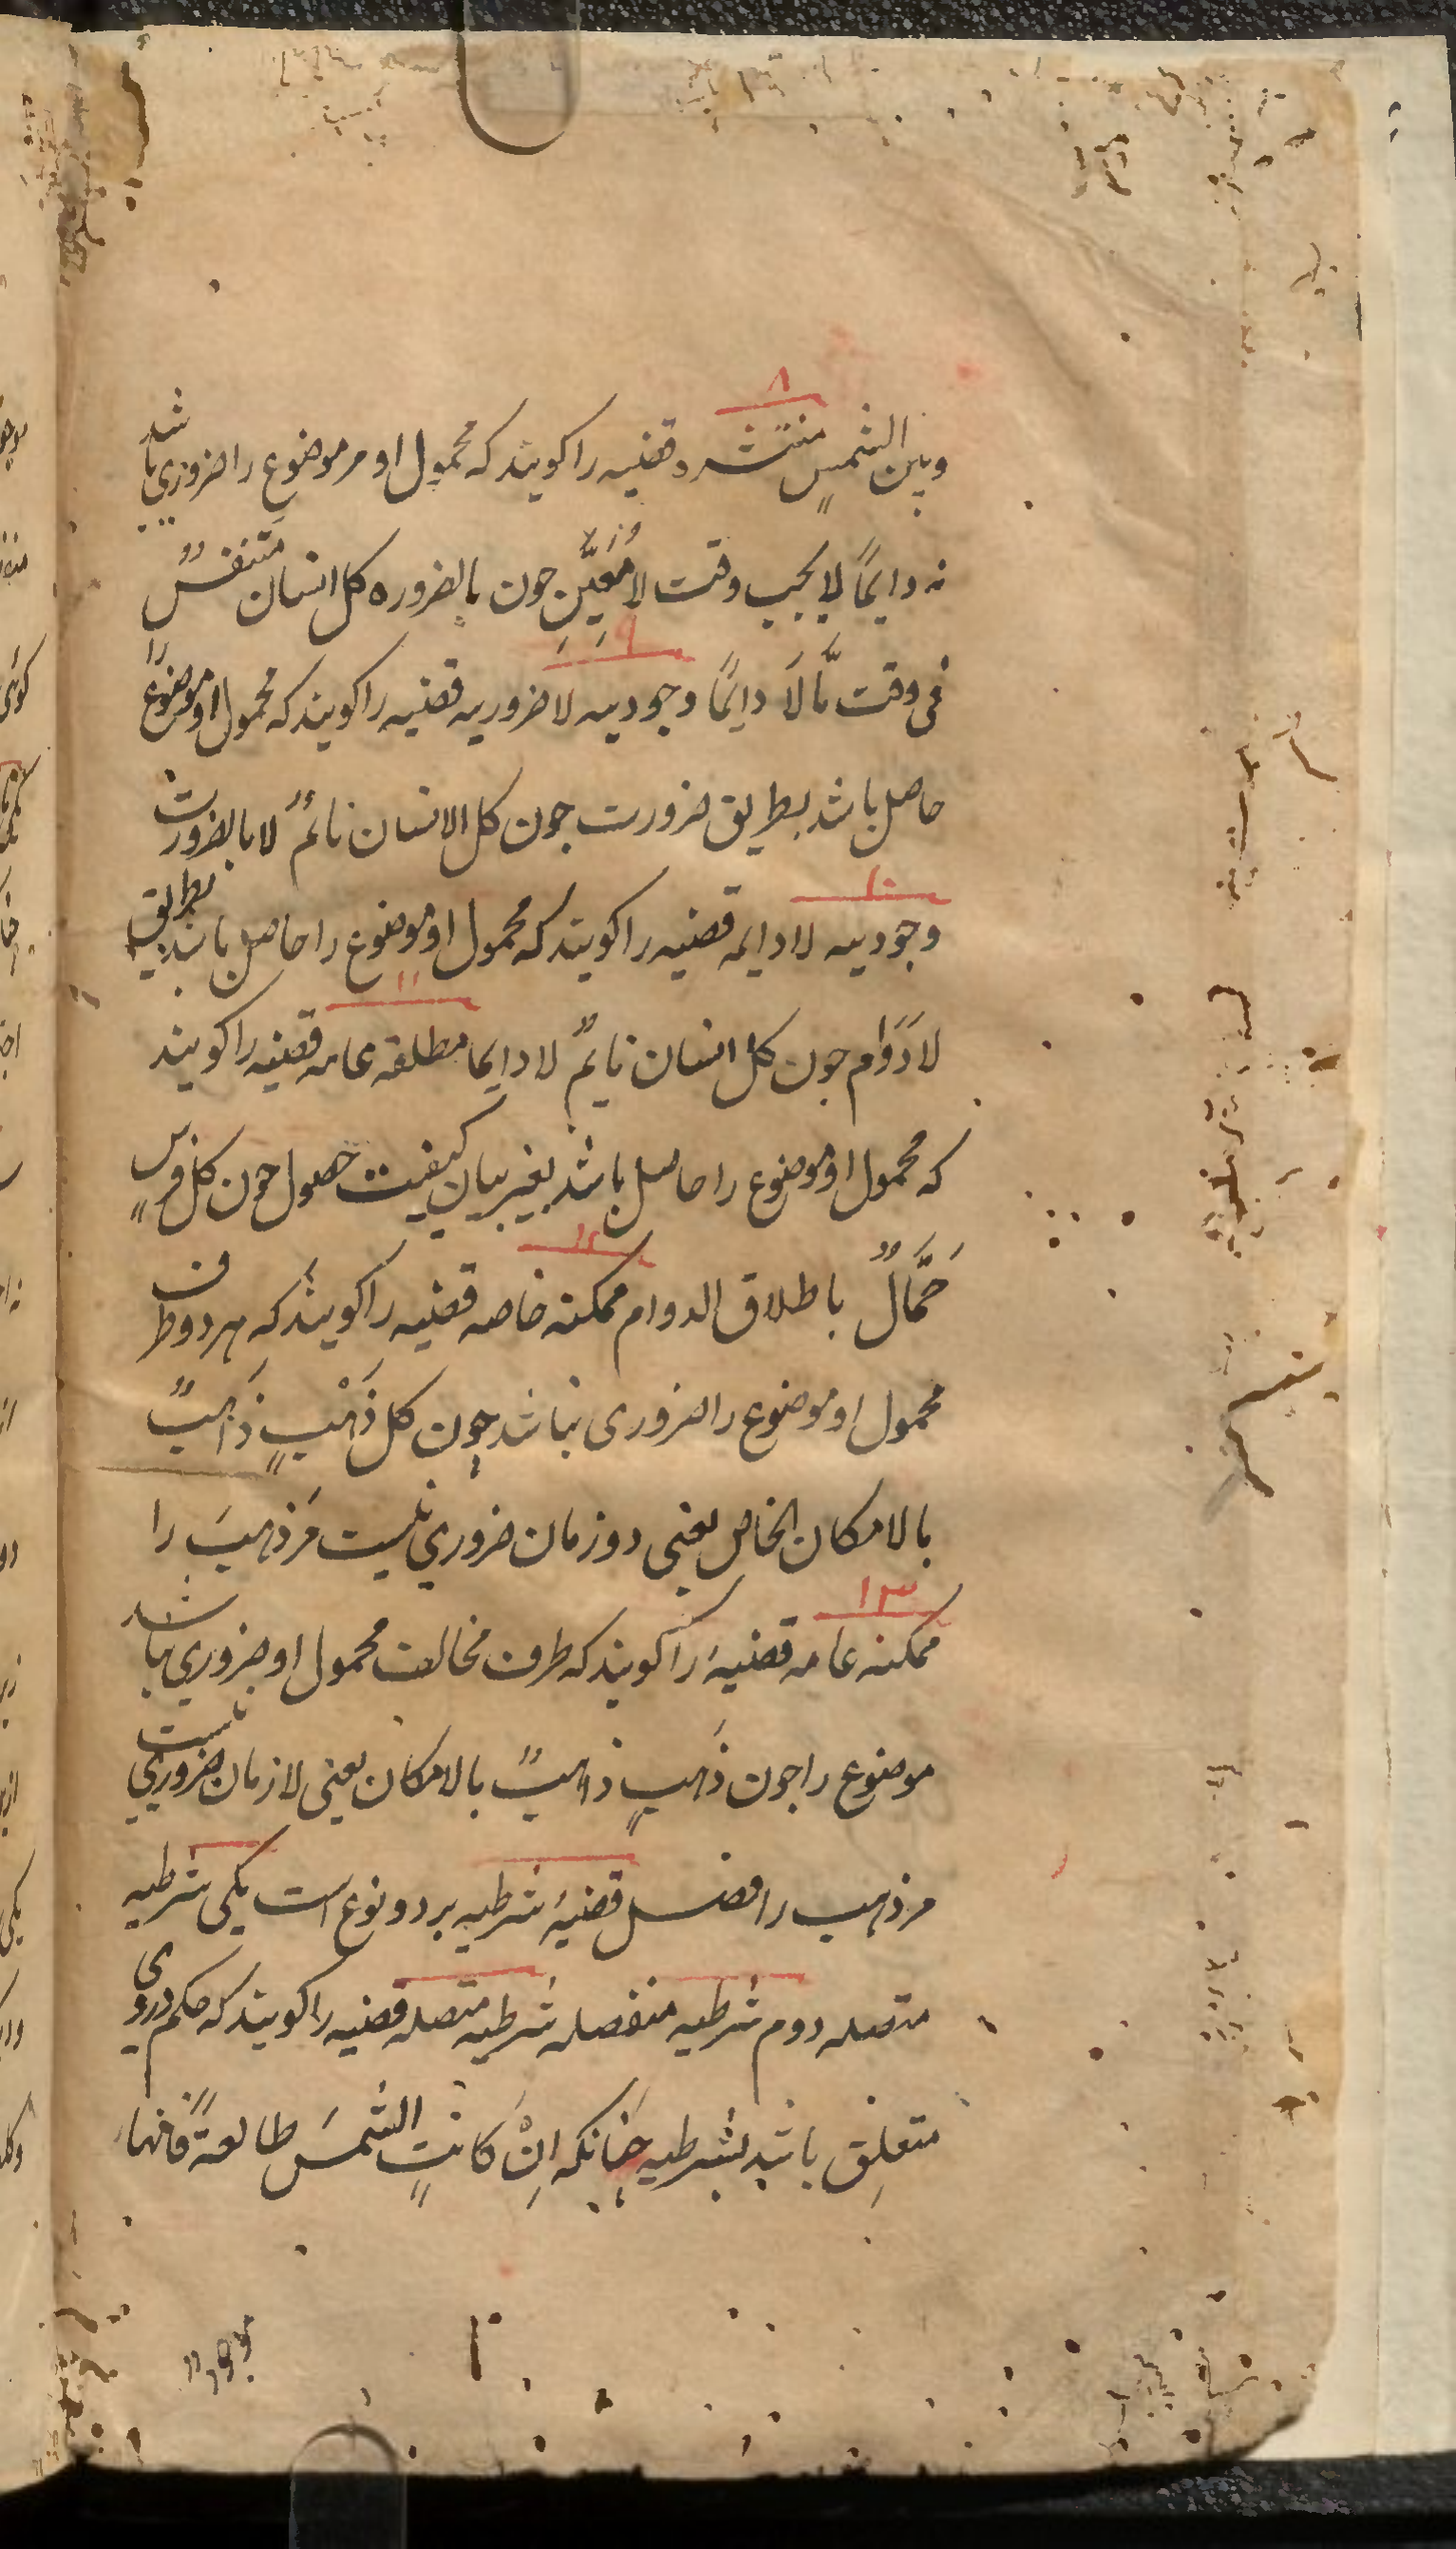 ۸
وبین الشمسٍ منتشره قضیه را کویند که محمول او مر موضوع را ضروری باشد
نه دایماً لا بحسب وقت لا مُعیَّنِ جون بالضروره کل انسان مَتنفسٌ
۹
فی وقت مَّا لَا دایماً وجودیه لا ضروریه قضیه را کویند که محمول او موضوع را
حاصل باشد بطریق ضرورت جون کل الانسان نائمٌ لا بالضورت
۱۰
وجودیه لا دایمه قضیه را کویند که محمول او موضوع را حاصل باشد بطریق
۱۱
لا دَوَام جون کل انسان نایمٌ لا دایما مطلقه عامه قضیه را کویند
که محمول او موضوع را حاصل باشد بغیر بیان کیفیت حصول جون کل فرسٍ
۱۲
حَمَّالٌ باطلاق الدوام ممکنه خاصه قضیه را کویند که هر دو طرف
محمول او موضوع را ضروری نباشد چون کل ذَهْبٍ ذَاهبٌ
بالامکان الخاص یعنی دو زمان ضروری نیست مَر ذهبَ را
۱۳
ممکنه عامه قضیهٔ را کویند که طرف مخالف محمول او ضروری باشد
موضوع را جون ذَهبٍ ذاهبٌ بالامکان یعنی لا زمان ضروری نیست
مر ذهب را فصل قضیهٔ شرطیه بر دو نوع است یکی شرطیه
متصله دوم شرطیه منفصله شرطیه متصله قضیه را کویند که حکم در وی
متعلِق باشد بشرطیه چنانکه اِنْ کانتٍ الشمسَ طالعةً فانها